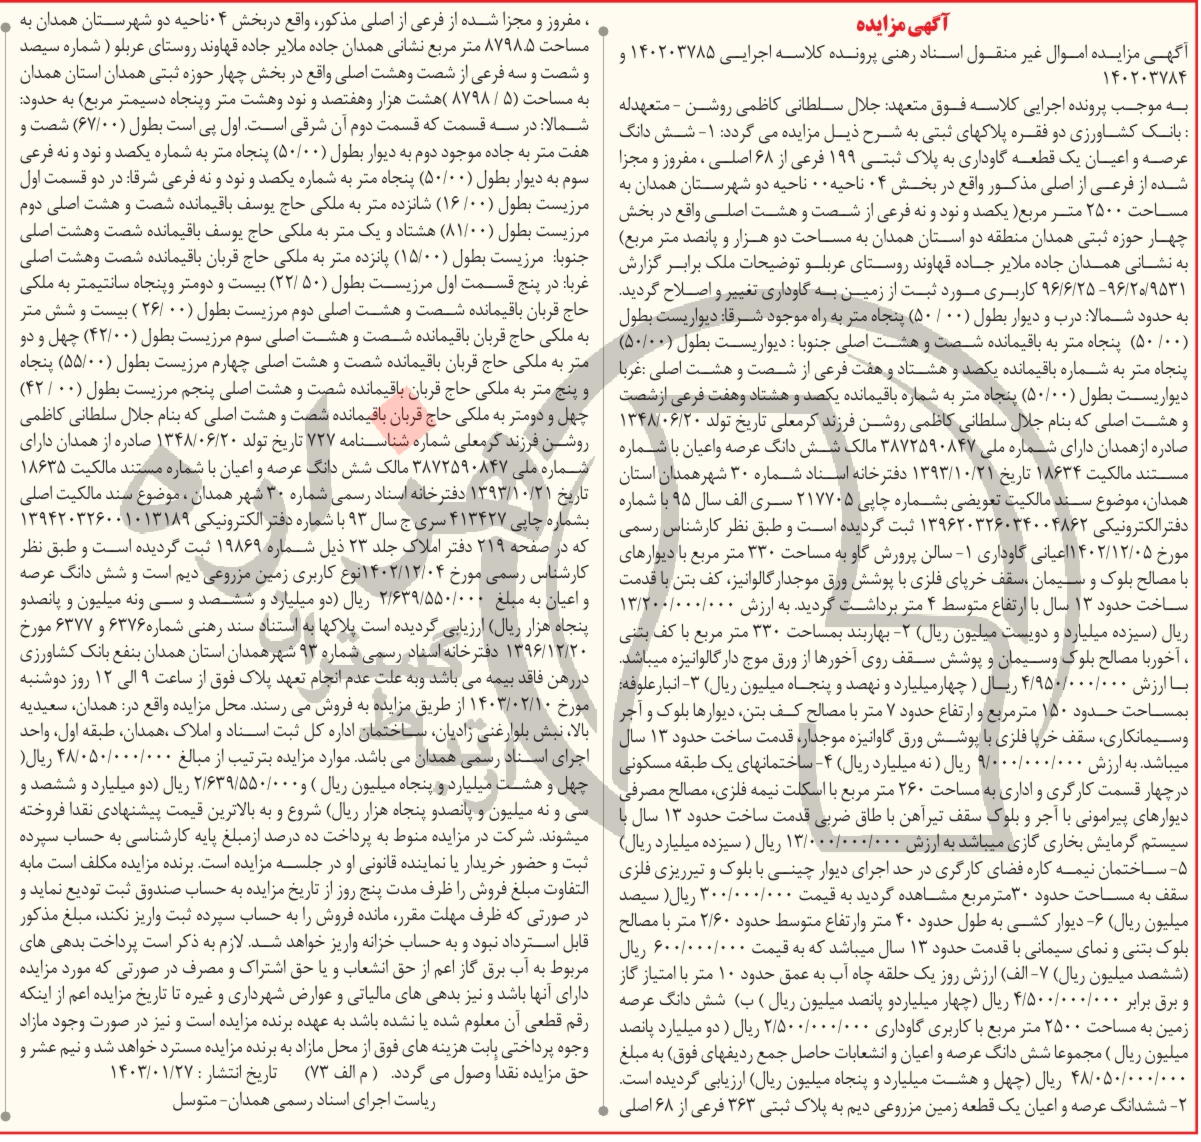 آگهی مزایده
آگهـی مزایـده امـوال غیر منقـول اسـناد رهنی پرونـده کلاسـه اجرایـی ۱۴۰۲۰۳۷۸۵ و
۱۴۰۲۰۳۷۸۴
بـه موجـب پرونده اجرایی کلاسـه فـوق متعهد: جلال سـلطانی کاظمی روشـن - متعهدله
: بانـک کشـاورزی دو فقـره پلاکهای ثبتی به شـرح ذیـل مزایده می گردد: ۱- شـش دانگ
عرصـه و اعیـان یک قطعـه گاوداری به پلاک ثبتـی ۱۹۹ فرعی از ۶۸ اصلـی ، مفروز و مجزا
شـده از فرعـی از اصلی مذکـور واقع در بخـش ۰۴ ناحیه۰۰ ناحیه دو شهرسـتان همدان به
مسـاحت ۲۵۰۰ متـر مربع( یکصد و نود و نه فرعی از شـصت و هشـت اصلـی واقع در بخش
چهـار حوزه ثبتی همدان منطقه دو اسـتان همدان به مسـاحت دو هـزار و پانصد متر مربع)
به نشـانی همـدان جاده ملایر جـاده قهاوند روسـتای عربلـو توضیحات ملک برابـر گزارش
۹۶/۲۰/۹۵۳۱- ۹۶/۶/۲۵ کاربـری مـورد ثبـت از زمیـن بـه گاوداری تغییر و اصلاح گردید.
به حدود شـمالا: درب و دیوار بطول (۰۰ / ۵۰) پنجاه متر به راه موجود شـرقا: دیواریسـت بطول
(۰۰/ ۵۰) پنجاه متر به باقیمانده شـصت و هشـت اصلی جنوبا : دیواریسـت بطول (۵۰/۰۰)
پنجاه متر به شـماره باقیمانده یکصد و هشـتاد و هفت فرعی از شـصت و هشـت اصلی :غربا
دیواریسـت بطول (۵۰/۰۰) پنجاه متر به شماره باقیمانده یکصد و هشتاد وهفت فرعی ازشصت
و هشـت اصلی که بنام جلال سـلطانی کاظمی روشن فرزند کرمعلی تاریخ تولد ۱۳۴۸/۰۶/۲۰
صادره ازهمدان دارای شـماره ملی ۳۸۷۲۵۹۰۸۴۷ مالک شـش دانگ عرصه واعیان با شـماره
مسـتند مالکیت ۱۸۶۳۴ تاریخ ۱۳۹۳/۱۰/۲۱ دفترخانه اسـناد شـماره ۳۰ شهرهمدان استان
همدان، موضوع سـند مالکیت تعویضی بشـماره چاپی ۲۱۷۷۰۵ سـری الف سال ۹۵ با شماره
دفترالکترونیکی ۱۳۹۶۲۰۳۲۶۰۳۴۰۰۴۸۶۲ ثبت گردیده اسـت و طبق نظر کارشناس رسمی
مورخ ۱۴۰۲/۱۲/۰۵اعیانی گاوداری ۱- سالن پرورش گاو به مساحت ۳۳۰ متر مربع با دیوارهای
با مصالح بلوک و سـیمان ،سـقف خرپای فلزی با پوشش ورق موجدارگالوانیز، کف بتن با قدمت
سـاخت حدود ۱۳ سال با ارتفاع متوسط ۴ متر برداشـت گردید. به ارزش ۱۳/۲۰۰/۰۰۰/۰۰۰
ریال (سیزده میلیارد و دویست میلیون ریال) ۲- بهاربند بمساحت ۳۳۰ متر مربع با کف بتنی
، آخوربا مصالح بلوک وسـیمان و پوشش سـقف روی آخورها از ورق موج دارگالوانیزه میباشد.
بـا ارزش ۴/۹۵۰/۰۰۰/۰۰۰ ریـال ( چهارمیلیارد و نهصد و پنجـاه میلیون ریال) ۳- انبارعلوفه:
بمسـاحت حـدود ۱۵۰ مترمربع و ارتفاع حدود ۷ متر با مصالح کـف بتن، دیوارها بلوک و آجر
وسـیمانکاری، سقف خرپا فلزی با پوشـش ورق گاوانیزه موجدار، قدمت ساخت حدود ۱۳ سال
میباشد. به ارزش ۹/۰۰۰/۰۰۰/۰۰۰ ریال ( نه میلیارد ریال) ۴- ساختمانهای یک طبقه مسکونی
درچهار قسمت کارگری و اداری به مساحت ۲۶۰ متر مربع با اسکلت نیمه فلزی، مصالح مصرفی
دیوارهای پیرامونی با آجر و بلوک سقف تیرآهن با طاق ضربی قدمت ساخت حدود ۱۳ سال با
سیستم گرمایش بخاری گازی میباشد به ارزش ۱۳/۰۰۰/۰۰۰/۰۰۰ ریال ( سیزده میلیارد ریال)
۵- سـاختمان نیمـه کاره فضای کارگری در حد اجرای دیوار چینـی با بلوک و تیرریزی فلزی
سقف به مسـاحت حدود ۳۰مترمربع مشـاهده گردید به قیمت ۳۰۰/۰۰۰/۰۰۰ ریال( سیصد
میلیون ریال) ۶- دیوار کشـی به طول حدود ۴۰ متر وارتفاع متوسط حدود ۲/۶۰ متر با مصالح
بلوک بتنی و نمای سیمانی با قدمت حدود ۱۳ سال میباشد که به قیمت ۶۰۰/۰۰۰/۰۰۰ ریال
(ششصد میلیون ریال) ۷- الف) ارزش روز یک حلقه چاه آب به عمق حدود ۱۰ متر با امتیاز گاز
و برق برابر ۴/۵۰۰/۰۰۰/۰۰۰ ریال (چهار میلیاردو پانصد میلیون ریال ) ب) شش دانگ عرصه
زمین به مساحت ۲۵۰۰ متر مربع با کاربری گاوداری ۲/۵۰۰/۰۰۰/۰۰۰ ریال ( دو میلیارد پانصد
میلیون ریال ) مجموعا شش دانگ عرصه و اعیان و انشعابات حاصل جمع ردیفهای فوق) به مبلغ
۴۸/۰۵۰/۰۰۰/۰۰۰ ریال (چهل و هشـت میلیارد و پنجاه میلیون ریال) ارزیابی گردیده است.
۲- ششدانگ عرصه و اعیان یک قطعه زمین مزروعی دیم به پلاک ثبتی ۳۶۳ فرعی از ۶۸ اصلی
، مفروز و مجزا شـده از فرعی از اصلی مذکور، واقع دربخش ۰۴ناحیه دو شهرسـتان همدان به
مساحت ۸۷۹۸.۵ متر مربع نشانی همدان جاده ملایر جاده قهاوند روستای عربلو ( شماره سیصد
و شصت و سه فرعی از شصت وهشت اصلی واقع در بخش چهار حوزه ثبتی همدان استان همدان
به مساحت (۵ / ۸۷۹۸ )هشت هزار وهفتصد و نود وهشت متر وپنجاه دسیمتر مربع) به حدود:
شـمالا: در سـه قسمت که قسمت دوم آن شرقی اسـت. اول پی است بطول (۶۷/۰۰) شصت و
هفت متر به جاده موجود دوم به دیوار بطول (۵۰/۰۰) پنجاه متر به شماره یکصد و نود و نه فرعی
سوم به دیوار بطول (۵۰/۰۰) پنجاه متر به شماره یکصد و نود و نه فرعی شرقا: در دو قسمت اول
مرزیست بطول (۰۰/ ۱۶) شانزده متر به ملکی حاج یوسف باقیمانده شصت و هشت اصلی دوم
مرزیست بطول (۸۱/۰۰) هشتاد و یک متر به ملکی حاج یوسف باقیمانده شصت وهشت اصلی
جنوبا: مرزیست بطول (۱۵/۰۰) پانزده متر به ملکی حاج قربان باقیمانده شصت وهشت اصلی
غربا: در پنج قسـمت اول مرزیسـت بطول (۵۰ /۲۲) بیست و دومتر وپنجاه سانتیمتر به ملکی
حاج قربان باقیمانده شـصت و هشـت اصلی دوم مرزیست بطول (۰۰ /۲۶ ) بیست و شش متر
به ملکی حاج قربان باقیمانده شـصت و هشـت اصلی سوم مرزیست بطول (۴۲/۰۰) چهل و دو
متر به ملکی حاج قربان باقیمانده شصت و هشت اصلی چهارم مرزیست بطول (۵۵/۰۰) پنجاه
و پنج متر به ملکی حاج قربان باقیمانده شصت و هشت اصلی پنجم مرزیست بطول (۰۰ / ۴۲)
چهل و دومتر به ملکی حاج قربان باقیمانده شصت و هشت اصلی که بنام جلال سلطانی کاظمی
روشـن فرزند کرمعلی شماره شناسـنامه ۷۲۷ تاریخ تولد ۱۳۴۸/۰۶/۲۰ صادره از همدان دارای
شـماره ملی ۳۸۷۲۵۹۰۸۴۷ مالک شش دانگ عرصه و اعیان با شماره مستند مالکیت ۱۸۶۳۵
تاریخ ۱۳۹۳/۱۰/۲۱ دفترخانه اسناد رسمی شماره ۳۰ شهر همدان ، موضوع سند مالکیت اصلی
بشماره چاپی ۴۱۳۴۲۷ سری ج سال ۹۳ با شماره دفتر الکترونیکی ۱۳۹۴۲۰۳۲۶۰۰۱۰۱۳۱۸۹
که در صفحه ۲۱۹ دفتر املاک جلد ۲۳ ذیل شـماره ۱۹۸۶۹ ثبت گردیده اسـت و طبق نظر
کارشناس رسمی مورخ ۱۴۰۲/۱۲/۰۴نوع کاربری زمین مزروعی دیم است و شش دانگ عرصه
و اعیان به مبلغ ۲/۶۳۹/۵۵۰/۰۰۰ ریال (دو میلیارد و ششـصد و سـی ونه میلیون و پانصدو
پنجاه هزار ریال) ارزیابی گردیده است پلاکها به استناد سند رهنی شماره۶۳۷۶ و ۶۳۷۷ مورخ
۱۳۹۶/۱۲/۲۰ دفترخانه اسناد رسمی شماره ۹۳ شهرهمدان استان همدان بنفع بانک کشاورزی
دررهن فاقد بیمه می باشد وبه علت عدم انجام تعهد پلاک فوق از ساعت ۹ الی ۱۲ روز دوشنبه
مورخ ۱۴۰۳/۰۲/۱۰ از طریق مزایده به فروش می رسند. محل مزایده واقع در: همدان، سعیدیه
بالا، نبش بلوارغنی زادیان، ساختمان اداره کل ثبت اسـناد و املاک ،همدان، طبقه اول، واحد
اجرای اسـناد رسمی همدان می باشد. موارد مزایده بترتیب از مبالغ ۴۸/۰۵۰/۰۰۰/۰۰۰ ریال(
چهل و هشـت میلیاردو پنجاه میلیون ریال ) و۲/۶۳۹/۵۵۰/۰۰۰ ریال (دو میلیارد و ششصد و
سی و نه میلیون و پانصدو پنجاه هزار ریال) شروع و به بالاترین قیمت پیشنهادی نقدا فروخته
میشوند. شرکت در مزایده منوط به پرداخت ده درصد ازمبلغ پایه کارشناسی به حساب سپرده
ثبت و حضور خریدار یا نماینده قانونی او در جلسـه مزایده است. برنده مزایده مکلف است مابه
التفاوت مبلغ فروش را ظرف مدت پنج روز از تاریخ مزایده به حساب صندوق ثبت تودیع نماید و
در صورتی که ظرف مهلت مقرر، مانده فروش را به حساب سپرده ثبت واریز نکند، مبلغ مذکور
قابل اسـترداد نبود و به حساب خزانه واریز خواهد شـد. لازم به ذکر است پرداخت بدهی های
مربوط به آب برق گاز اعم از حق انشعاب و یا حق اشتراک و مصرف در صورتی که مورد مزایده
دارای آنها باشد و نیز بدهی های مالیاتی و عوارض شهرداری و غیره تا تاریخ مزایده اعم از اینکه
رقم قطعی آن معلوم شده یا نشده باشد به عهده برنده مزایده است و نیز در صورت وجود مازاد
وجوه پرداختی بابت هزینه های فوق از محل مازاد به برنده مزایده مسترد خواهد شد و نیم عشر و
حق مزایده نقدا وصول می گردد. ( م الف ۷۳) تاریخ انتشار : ۱۴۰۳/۰۱/۲۷
ریاست اجرای اسناد رسمی همدان- متوسل
هزاره